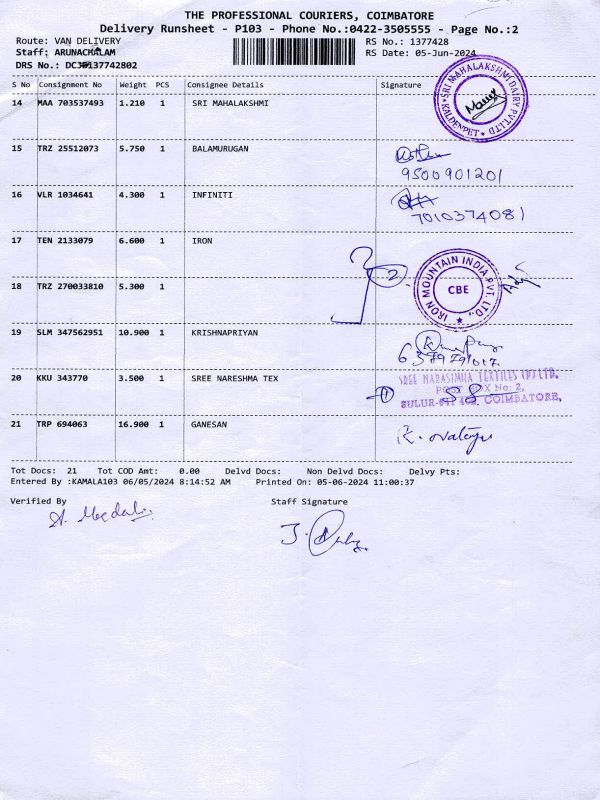 THE PROFESSIONAL COURIERS, COIMBATORE
Delivery Runsheet - P103 - Phone No.:0422-3505555 - Page No.:2
Route: VAN DELIVERY
RS No.: 1377428
Staff: ARUNACHALAM
RS Date: 05-Jun-2024
DRS No.: 137742802
S No Consignment No Weight PCS Consignee Details Signature
14 MAA 703537493 1.210 1 SRI MAHALAKSHMI
SRI MAHALAKSHMI DAIRY PVT LTD
15 TRZ 25512073 5.750 1 BALAMURUGAN
9500901201
16 VLR 1034641 4.300 1 INFINITI
7010374081
17 TEN 2133079 6.600 1 IRON
2
IRON MOUNTAIN INDIA PVT. LTD.,
CBE
18 TRZ 270033810 5.300 1
19 SLM 347562951 10.900 1 KRISHNAPRIYAN
20 KKU 343770 3.500 1 SREE NARESHMA TEX
SREE NARASIMHA TEXTILES (P) LTD,
No: 2,
COIMBATORE,
21 TRP 694063 16.900 1 GANESAN
Tot Docs: 21 Tot COD Amt: 0.00 Delvd Docs: Non Delvd Docs: Delvy Pts:
Entered By :KAMALA103 06/05/2024 8:14:52 AM Printed On: 05-06-2024 11:00:37
Verified By
Staff Signature